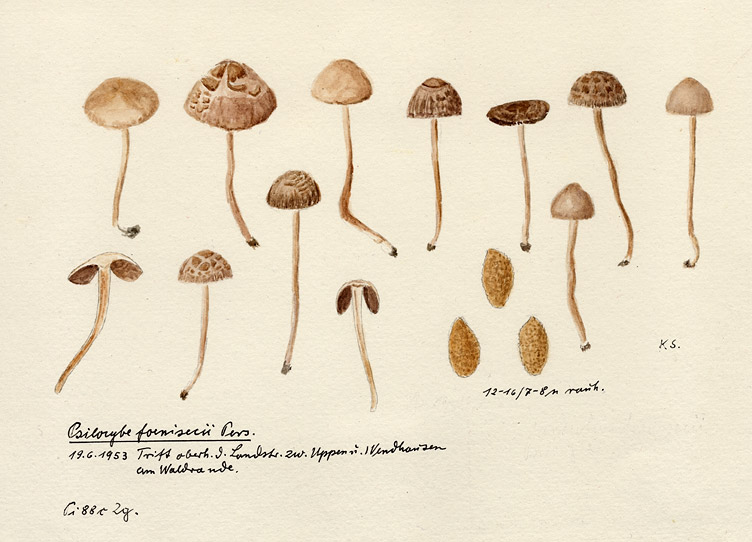 K. S.
12-16/7-8µ rauh.
Psilocybe foenisecii Pers.
19.6.1953 Trift oberh. d. Landstr. zw. Uppen u. Wendhausen
am Waldrande.
Ri 88c 2g.